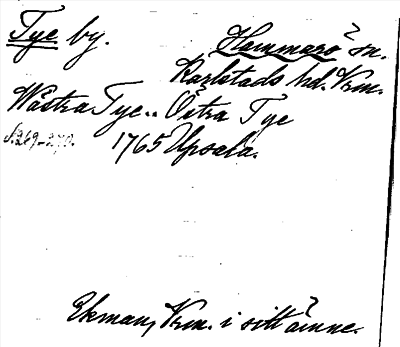 Tye by. Hammarö sn.
Karlstads hd. Vrm.
Wästra Tye.. Östra Tye
S. 269-270. 1765 Upsala.
Ekman, Vrm. i sitt ämne.